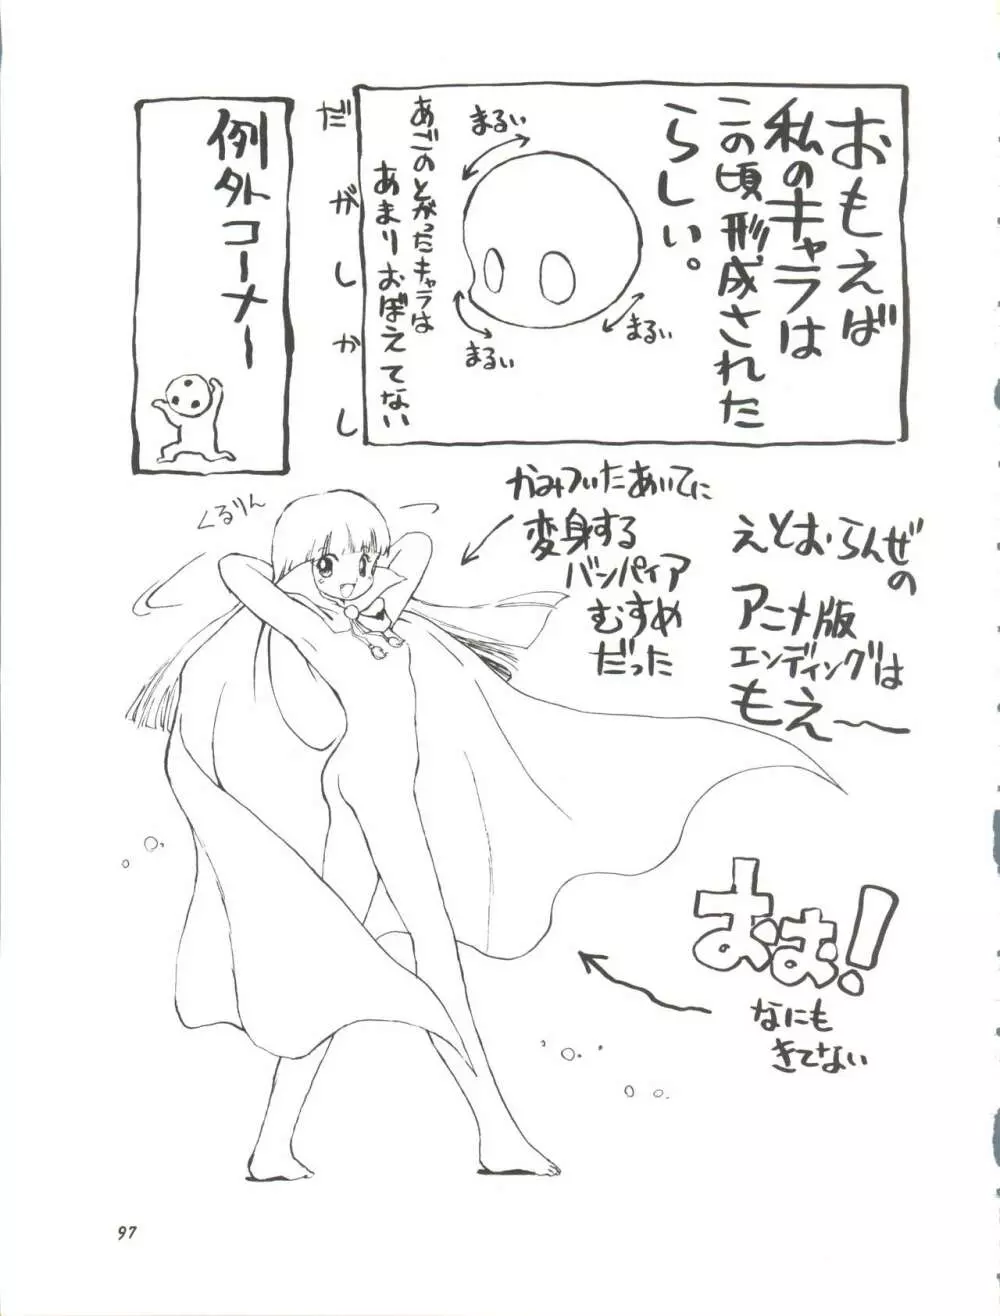 おもえば
私のキャラは
この頃形成された
らしい。
まるい
まるい
まるい
あごのとがったキャラは
あまりおぼえてない
だがしかし
例外コーナー
くるりん
かみついたあいてに
変身する
バンパイア
むすめ
だった
えとお・らんぜの
アニメ版
エンディングは
もえ〜
おお!
なにも
きてない
97